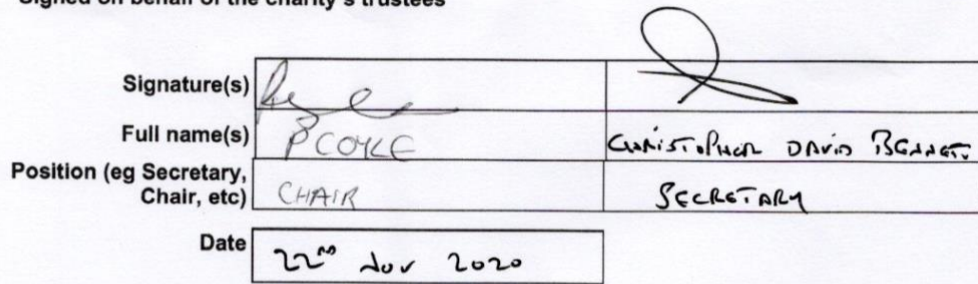 Signed on behalf of the charity's trustees
Signature(s)
Full name(s) P COYLE CHRISTOPHER DAVID BENNETT
Position (eg Secretary, Chair, etc) CHAIR SECRETARY
Date 22ND NOV 2020